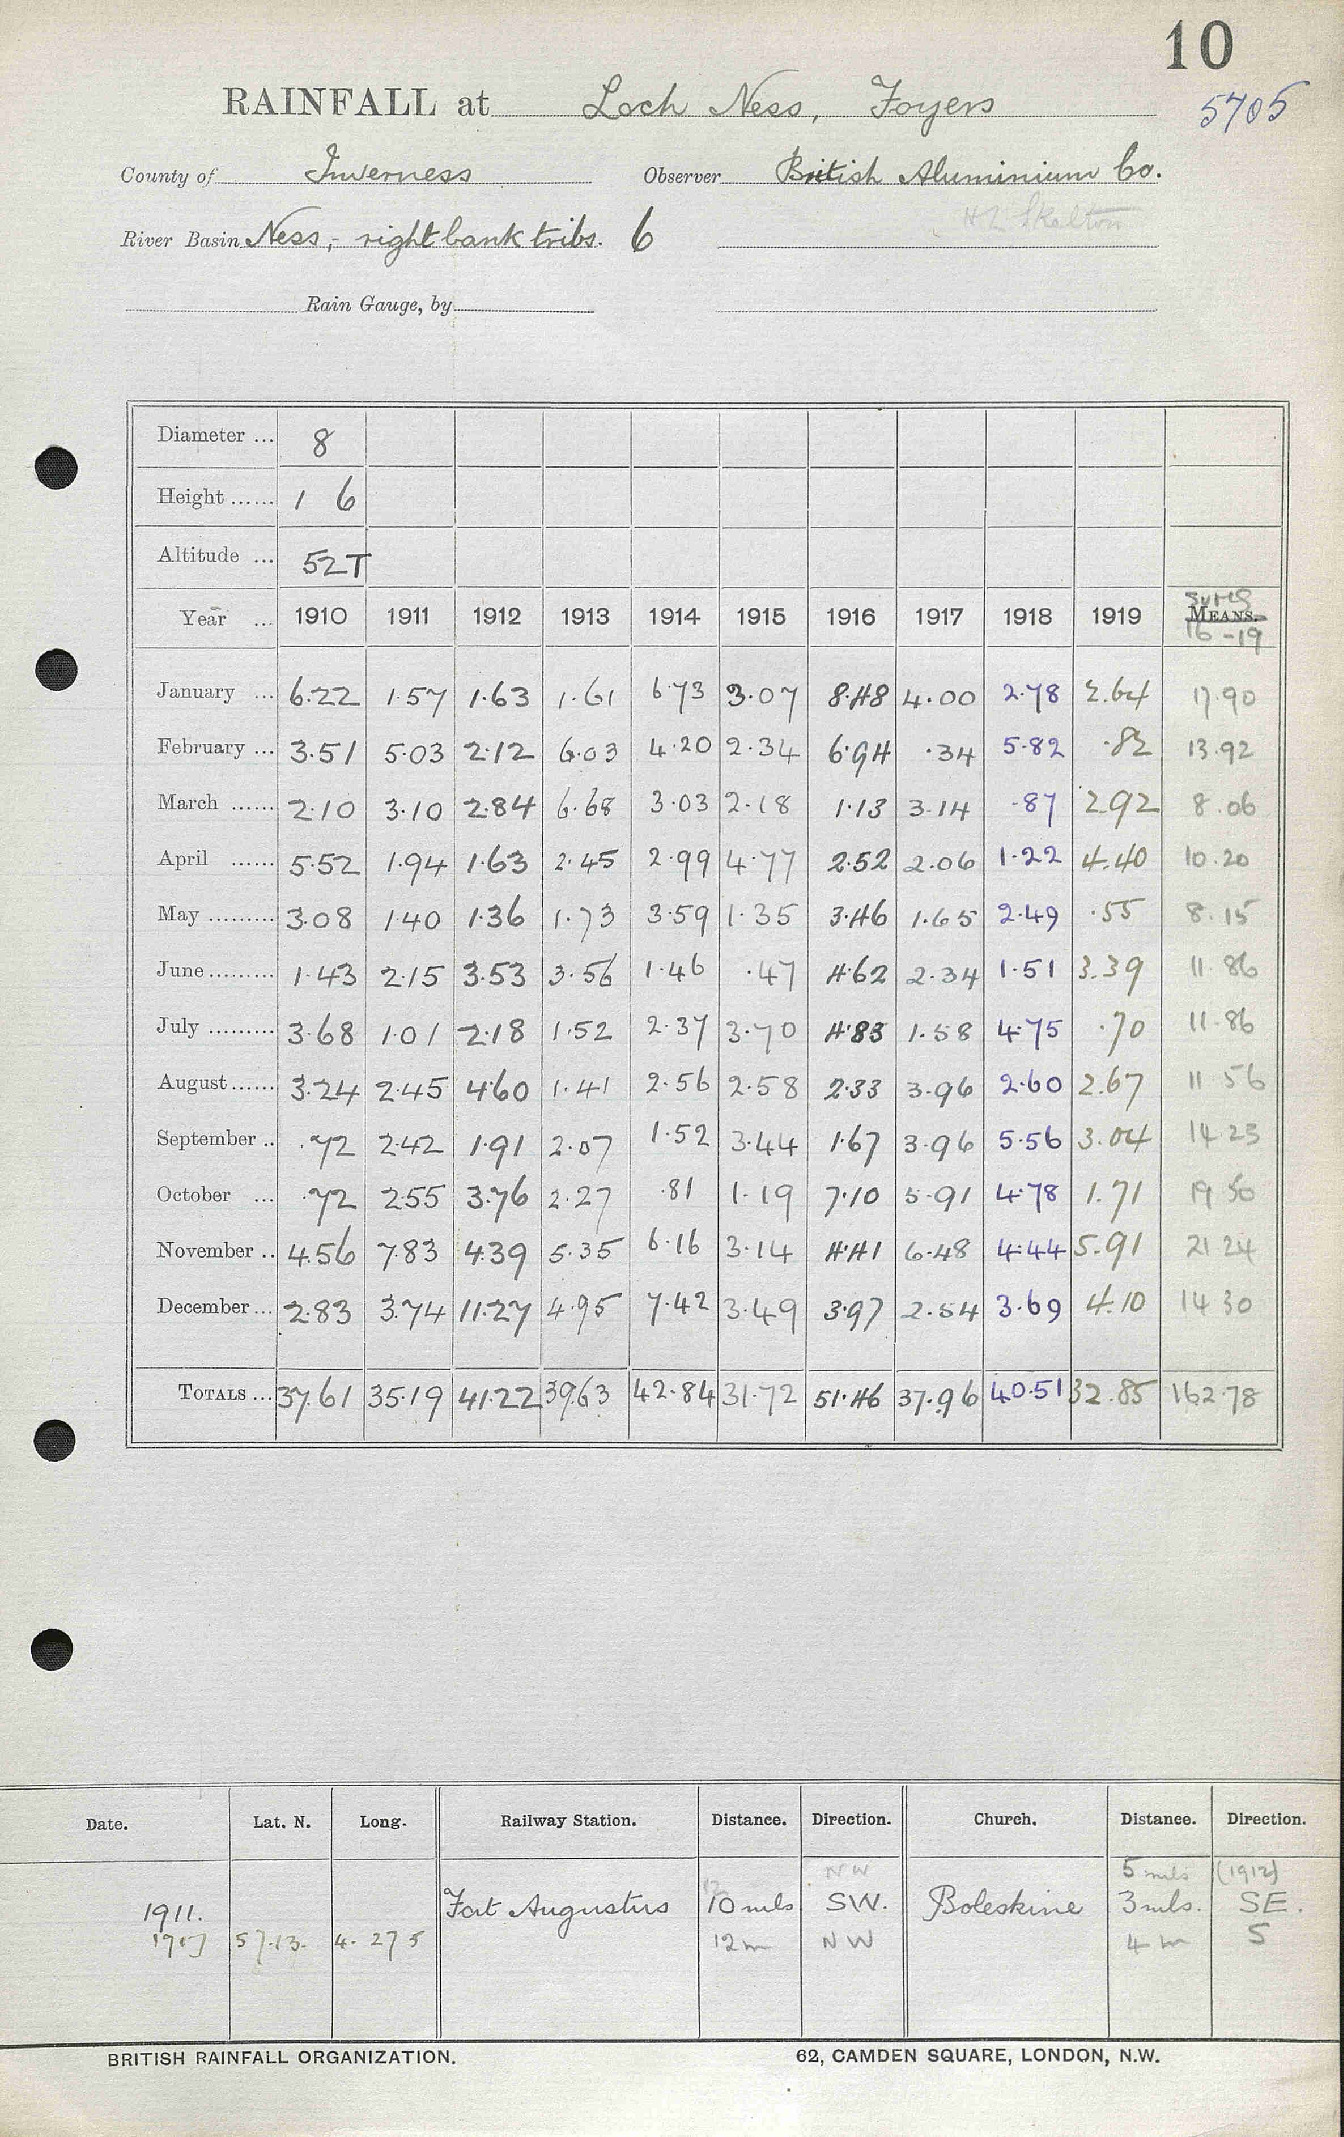 10
RAINFALL at Loch Ness, Foyers 5705
County of Inverness Observer British Aluminium Co.
H L Skelton
River Basin Ness,- right bank tribs. 6
Rain Gauge, by
Diameter ... 8
Height ...... 1 6
Altitude ... 52T
Sums
Year ... 1910 1911 1912 1913 1914 1915 1916 1917 1918 1919 MEANS.
16-19
January ... 6.22 1.57 1.63 1.61 6.73 3.07 8.48 4.00 2.78 2.64 17.90
February ... 3.51 5.03 2.12 6.03 4.20 2.34 6.94 .34 5.82 .82 13.92
March ...... 2.10 3.10 2.84 6.68 3.03 2.18 1.13 3.14 .87 2.92 8.06
April ...... 5.52 1.94 1.63 2.45 2.99 4.77 2.52 2.06 1.22 4.40 10.20
May ......... 3.08 1.40 1.36 1.73 3.59 1.35 3.46 1.65 2.49 .55 8.15
June ......... 1.43 2.15 3.53 3.56 1.46 .47 4.62 2.34 1.51 3.39 11.86
July ......... 3.68 1.01 2.18 1.52 2.37 3.70 4.83 1.58 4.75 .70 11.86
August ...... 3.24 2.45 4.60 1.41 2.56 2.58 2.33 3.96 2.60 2.67 11.56
September .. .72 2.42 1.91 2.07 1.52 3.44 1.67 3.96 5.56 3.04 14.23
October ... .72 2.55 3.76 2.27 .81 1.19 7.10 5.91 4.78 1.71 19.50
November .. 4.56 7.83 4.39 5.35 6.16 3.14 4.41 6.48 4.44 5.91 21.24
December ... 2.83 3.74 11.27 4.95 7.42 3.49 3.97 2.54 3.69 4.10 14.30
TOTALS ... 37.61 35.19 41.22 39.63 42.84 31.72 51.46 37.96 40.51 32.85 162.78
Date. Lat. N. Long. Railway Station. Distance. Direction. Church. Distance. Direction.
12 NW 5 mls (1912)
1911. Fort Augustus 10 mls SW. Boleskine 3 mls. SE.
57.13. 4. 27 5 12 m NW 4 m S
BRITISH RAINFALL ORGANIZATION. 62, CAMDEN SQUARE, LONDON, N.W.